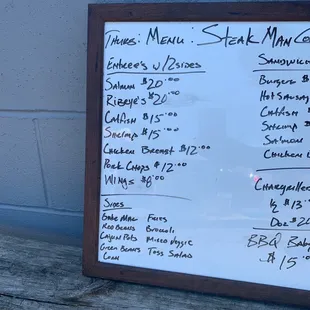 Thurs: Menu: Steak Man Co
Entree's w/2sides
Salmon $20.00
Ribeye's $20.00
Catfish $15.00
Shrimp $15.00
Chicken Breast $12.00
Pork Chops $12.00
Wings $8.00
Sides
Bake Mac Fries
Red Beans Broccoli
Cajun Pots Mixed Veggie
Green Beans Toss Salad
Corn
Sandwich
Burger
Hot Sausag
Catfish
Shrimp
Salmon
Chicken
Chargrille
½ $13.
Doz $20
BBQ Baby
$15.